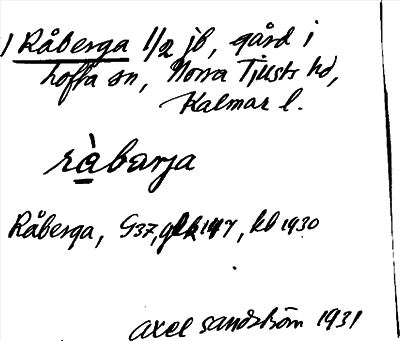 1 Råberga 1/2 jb, gård i
Lofta sn, Norra Tjusts hd,
Kalmar l.
ràbarja
Råberga, G37, 1930
Axel Sandström 1931